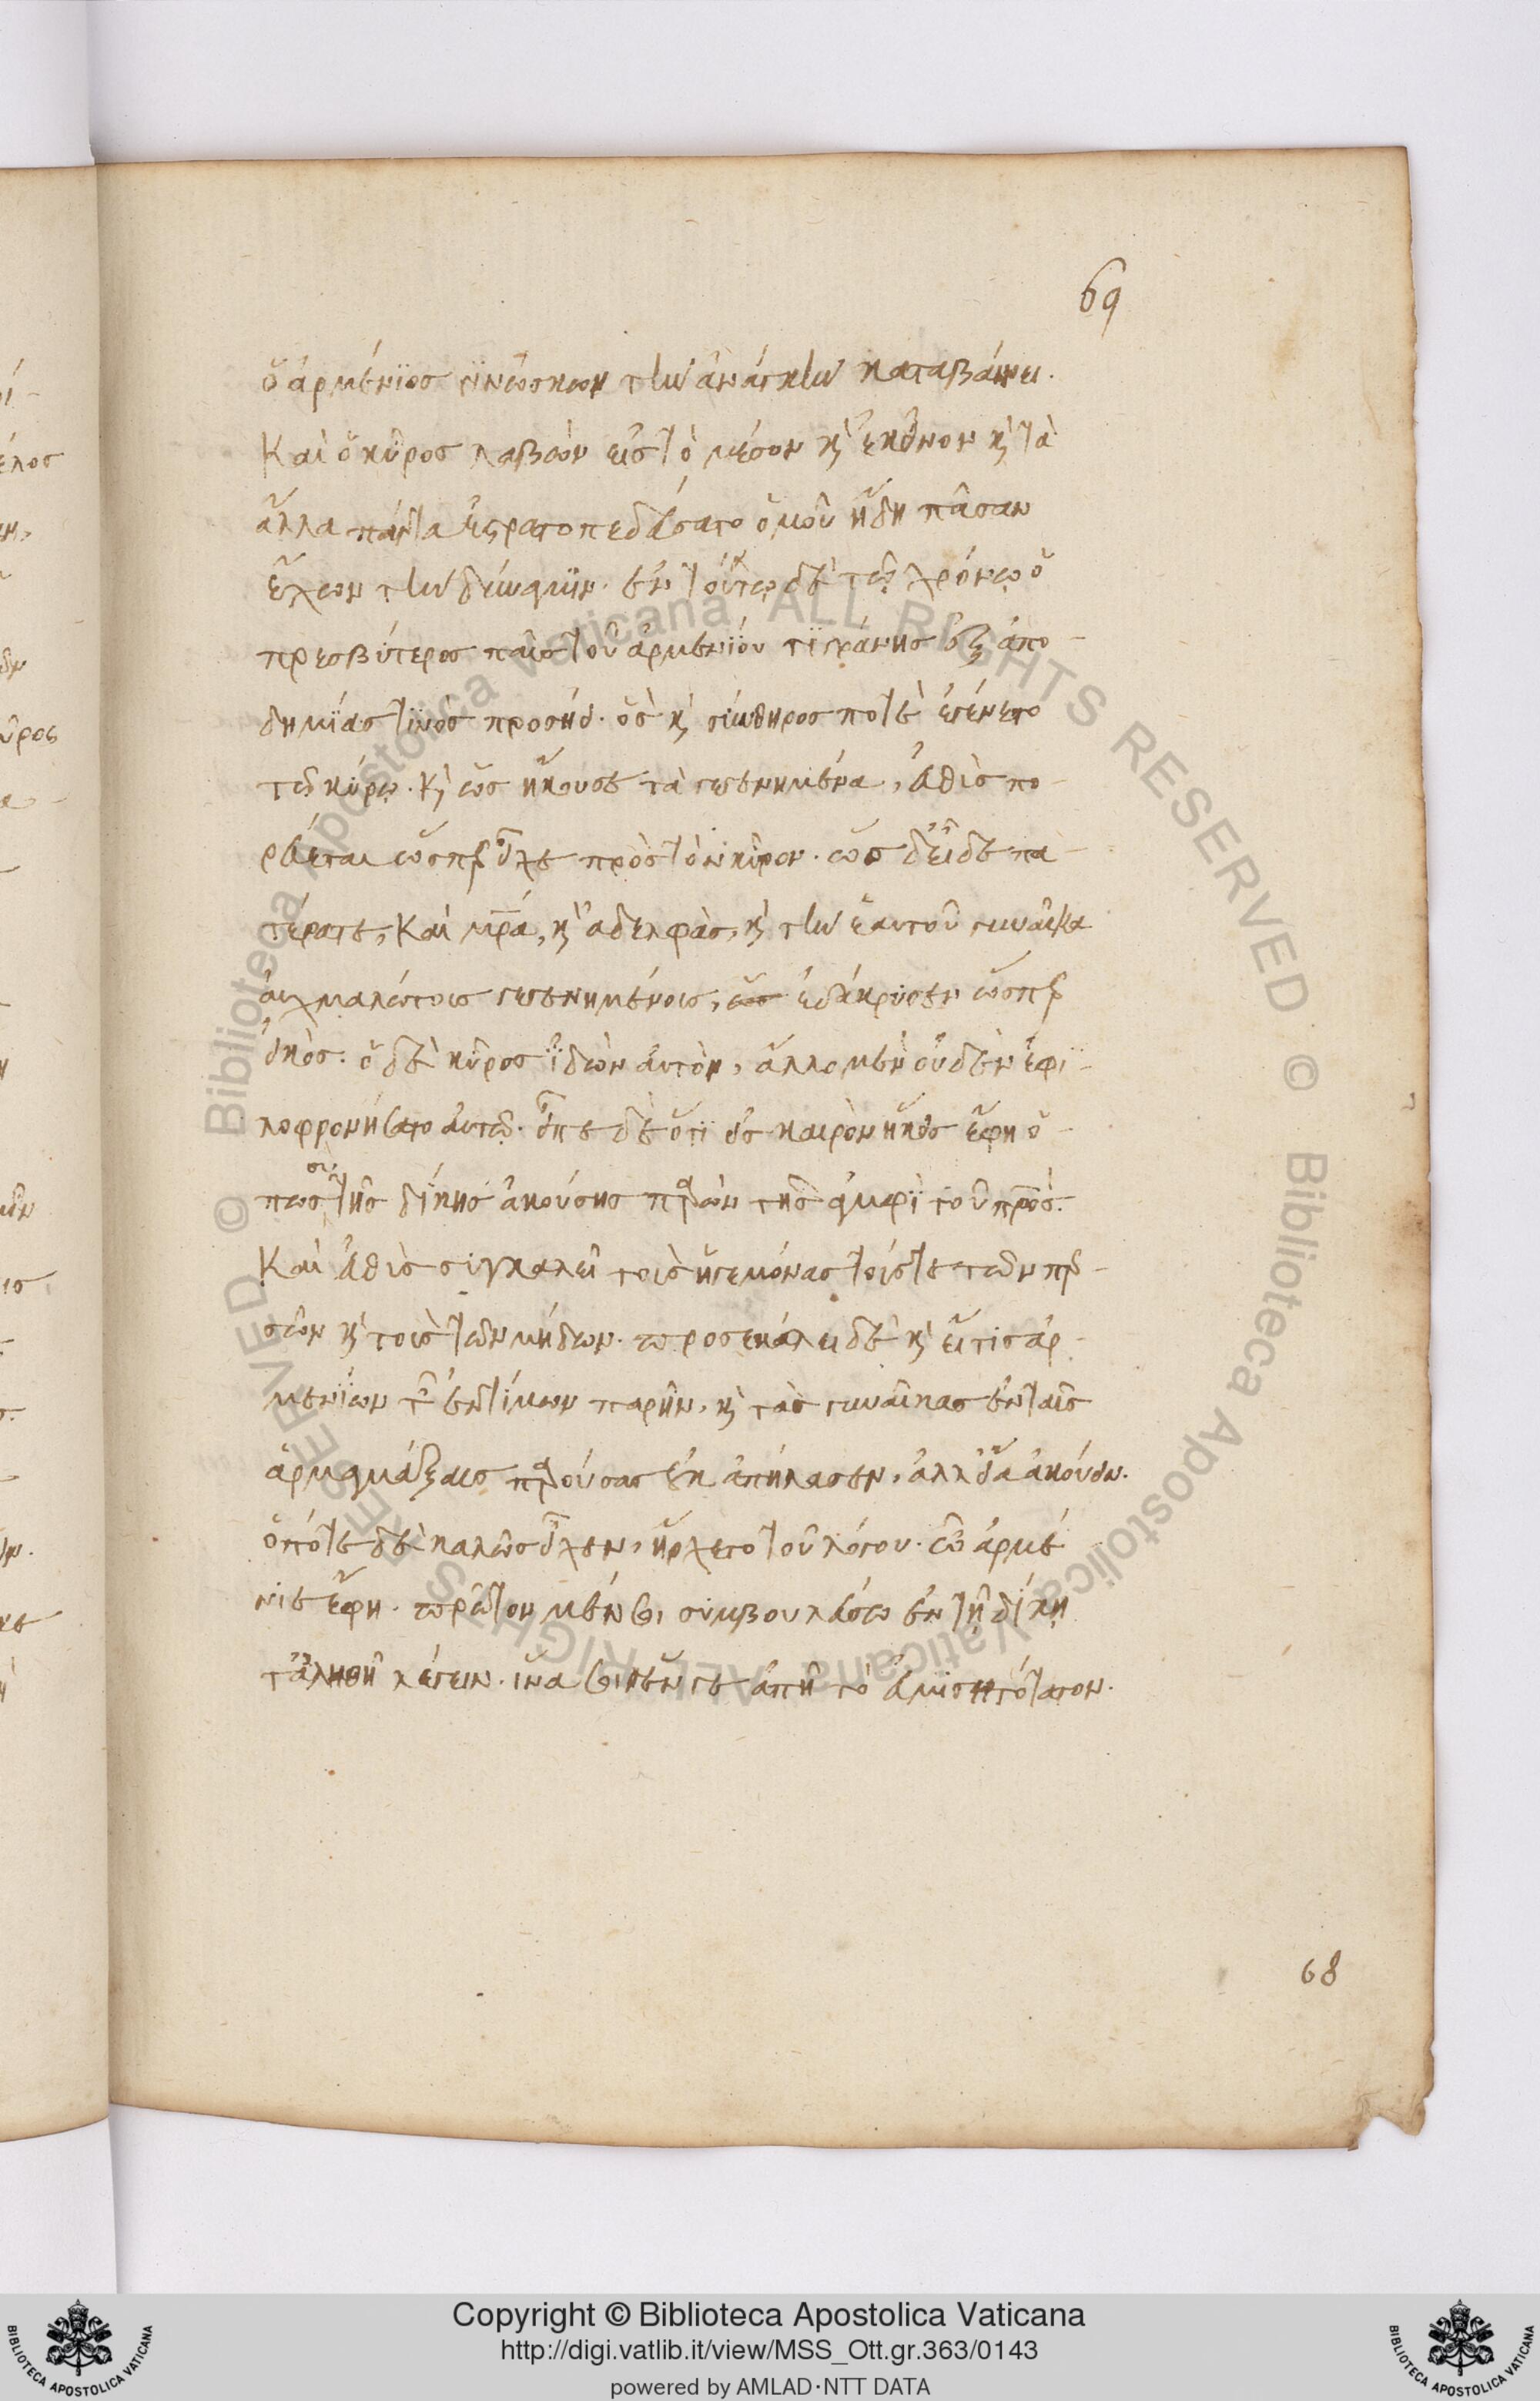 69
ὁ ἀρμένϊος γϊνώσκων τὴν ἀνάγκην καταβάινει.
Καὶ ὁ κῦρος λαβὼν εἰς τὸ μέσον κ̀ ἐκεῖνον κ̀ τὰ
ἄλλα πάντα ἐστρατοπεδεύσατο ὁμοῦ ἤδη πᾶσαν
ἔχων τὴν δύναμϊν. ἐν τούτῳ δὲ τῷ χρόνῳ ὁ
πρεσβύτερος παῖς τοῦ ἀρμενϊόυ τϊγράνης ἐξ ἀπο-
δημϊάς τϊνὸς προσήει. ὃς κ̀ σύνθηρος ποτὲ ἐγένετο
τῷ κύρῳ. κ̀ ὡς ἤκουσε τὰ γεγενημένα, ἐυθὺς πο-
ρεύεται ὥσπερ εἶχε πρὸς τὸν κῦρον. ὡς δ' εἶδε πα-
τέρα τε, Καὶ μρ̅ά, κ̀ ἀδελφὰς, κ̀ τὴν ἑαυτοῦ γυναῖκα
ἀιχμαλώτους γεγενημένους, ὡς ἐδάκρυσεν ὥσπερ
εἰκός. ὁ δὲ κῦρος ἰδὼν ἀυτὸν, ἄλλο μὲν οὐδὲν ἐφι-
λοφρονήσατο ἀυτῷ. εἶπε δὲ ὅτϊ εἰς καιρὸν ἥκεις ἔφη ὅ-
πως σὺ τῆς δίκης ἀκούσῃς παρὼν τῆς ἀμφὶ τοῦ πρ̅ός.
Καὶ ἐυθὺς συγκαλεῖ τοὺς ἡγεμόνας τούς τε τῶν περ-
σῶν κ̀ τοὺς τῶν μήδων. προσεκάλει δὲ κ̀ εἴ τις ἀρ-
μενϊων τῶν ἐντίμων παρῆν, κ̀ τὰς γυναῖκας ἐν ταῖς
ἁρμαμάξαις παρούσας οὐκ ἀπήλασεν, ἀλλ' εἴα ἀκούειν.
ὁπότε δὲ καλῶς εἶχεν, ἤρχετο τοῦ λόγου. ὦ ἀρμέ
νιε ἔφη. πρῶτον μέν σοι συμβουλεύω ἐν τῇ δίκῃ
τἀληθῆ λέγειν. ἵνα σοι ἕν γε ἀπῇ τὸ ἐυμισητότατον.
68
Copyright © Biblioteca Apostolica Vaticana
http://digi.vatlib.it/view/MSS_Ott.gr.363/0143
powered by AMLAD·NTT DATA